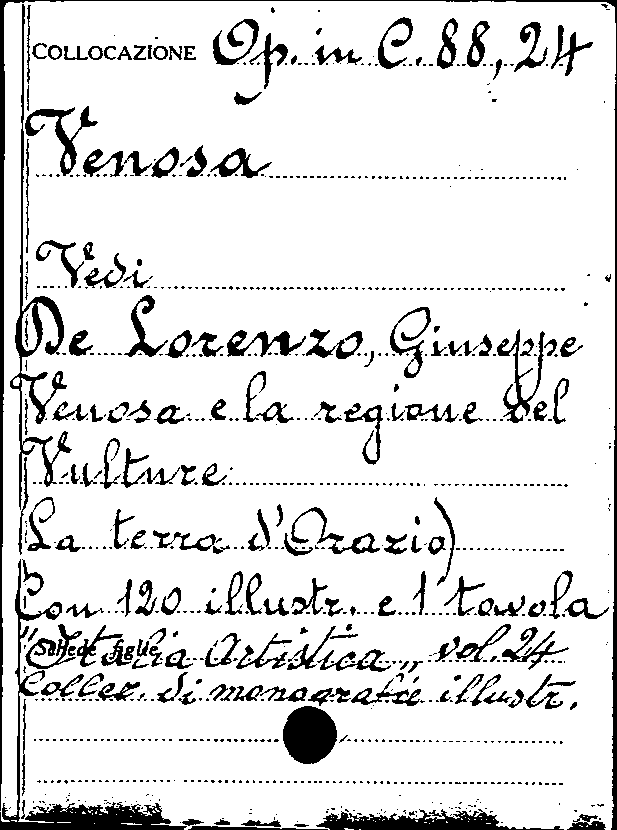 COLLOCAZIONE Op. in C. 88, 24
Venosa
Vedi
De Lorenzo, Giuseppe
Venosa e la regione del
Vulture
La terra d'Orazio)
Con 120 illustr. e 1 tavola
Schede figlie
"Italia Artistica„ vol. 24
Collez. di monografie illustr.